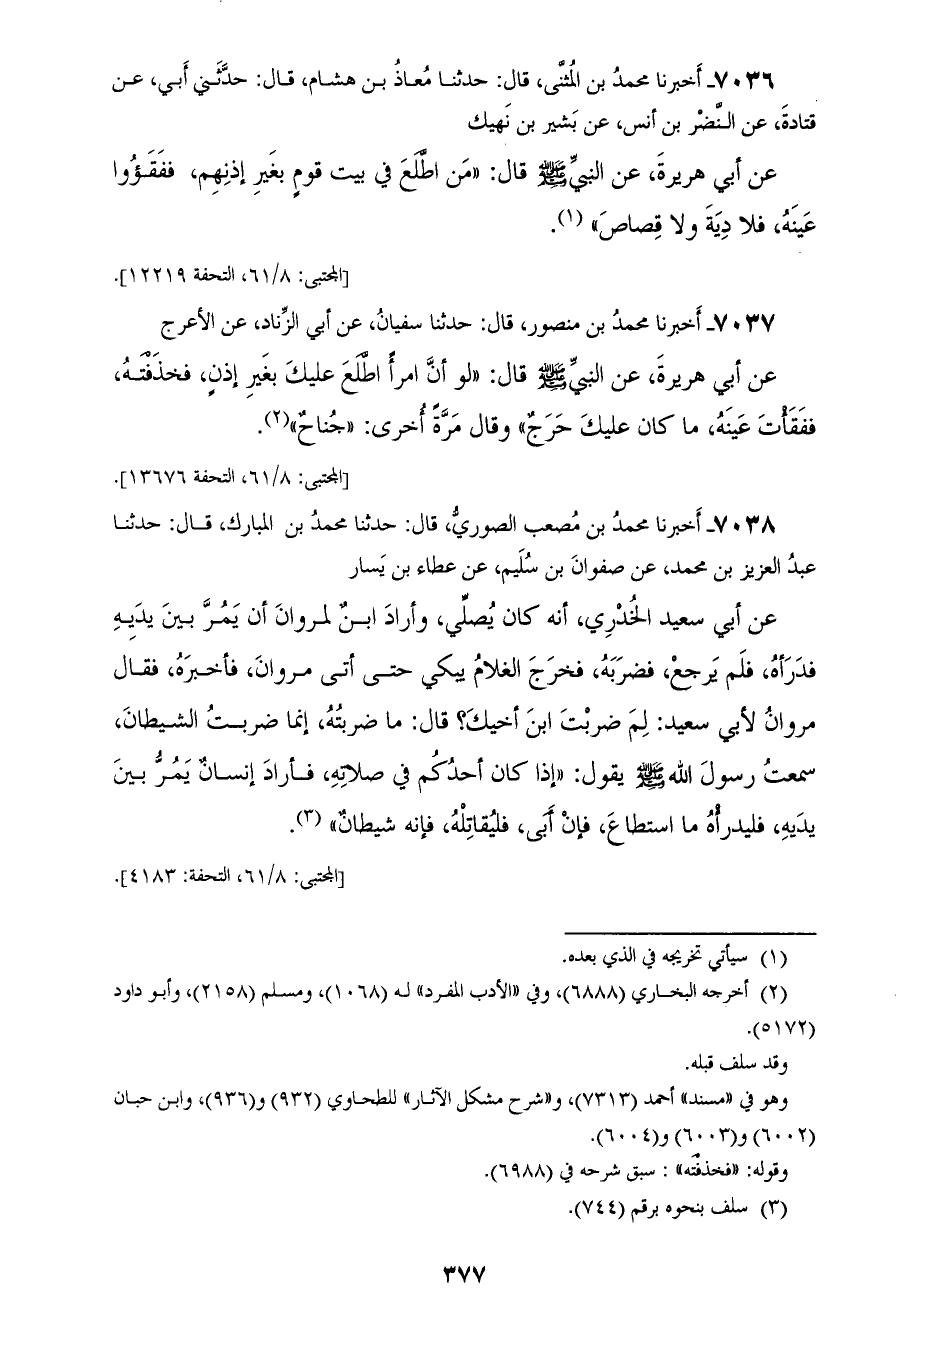 ٧٠٣٦ـ أَخبرنا محمدُ بن المُثنَّى، قال: حدثنا مُعاذُ بن هشام، قال: حدَّثَني أَبي، عن
قتادةَ، عن النَّضْر بن أنس، عن بَشير بن نَهيك
عن أبي هريرةَ، عن النبيِّ ﷺ قال: «مَن اطَّلَعَ في بيت قومٍ بغَيرِ إذنِهِم، ففَقَؤُوا
عَينَهُ، فلا دِيَةَ ولا قِصاصَ» (١).
[المجتبى: ٦١/٨، التحفة ١٢٢١٩].
٧٠٣٧ـ أَخبرنا محمدُ بن منصور، قال: حدثنا سفيانُ، عن أبي الزِّناد، عن الأعرج
عن أبي هريرةَ، عن النبيِّ ﷺ قال: «لو أنَّ امرأً اطَّلَعَ عليكَ بغَيرِ إذنٍ، فخذَفْتَهُ،
ففَقَأْتَ عَينَهُ، ما كان عليكَ حَرَجٌ» وقال مَرَّةً أُخرى: «جُناحٌ»(٢).
[المجتبى: ٦١/٨، التحفة ١٣٦٧٦].
٧٠٣٨ـ أَخبرنا محمدُ بن مُصعب الصوريُّ، قال: حدثنا محمدُ بن المبارك، قال: حدثنا
عبدُ العزيز بن محمد، عن صفوانَ بن سُلَيم، عن عطاء بن يَسار
عن أبي سعيد الخُدْرِي، أنه كان يُصلِّي، وأرادَ ابنٌ لمروانَ أن يَمُرَّ بينَ يدَيهِ
فدَرَأَهُ، فلَم يَرجعْ، فضرَبَهُ، فخرَجَ الغلامُ يبكي حتى أتى مروانَ، فأخبرَهُ، فقال
مروانُ لأبي سعيد: لِمَ ضربْتَ ابنَ أخيكَ؟ قال: ما ضربتُهُ، إنما ضربتُ الشيطانَ،
سمعتُ رسولَ الله ﷺ يقول: «إذا كان أحدُكُم في صلاتِهِ، فأرادَ إنسانٌ يَمُرُّ بينَ
يدَيهِ، فليدرأْهُ ما استطاعَ، فإنْ أَبَى، فليُقاتِلْهُ، فإنه شيطانٌ» (٣).
[المجتبى: ٦١/٨، التحفة: ٤١٨٣].
(١) سيأتي تخريجه في الذي بعده.
(٢) أخرجه البخاري (٦٨٨٨)، وفي «الأدب المفرد» له (١٠٦٨)، ومسلم (٢١٥٨)، وأبو داود
(٥١٧٢).
وقد سلف قبله.
وهو في «مسند» أحمد (٧٣١٣)، و«شرح مشكل الآثار» للطحاوي (٩٣٢) و(٩٣٦)، وابن حبان
(٦٠٠٢) و(٦٠٠٣) و(٦٠٠٤).
وقوله: «فخذفْتَه» : سبق شرحه في (٦٩٨٨).
(٣) سلف بنحوه برقم (٧٤٤).
٣٧٧